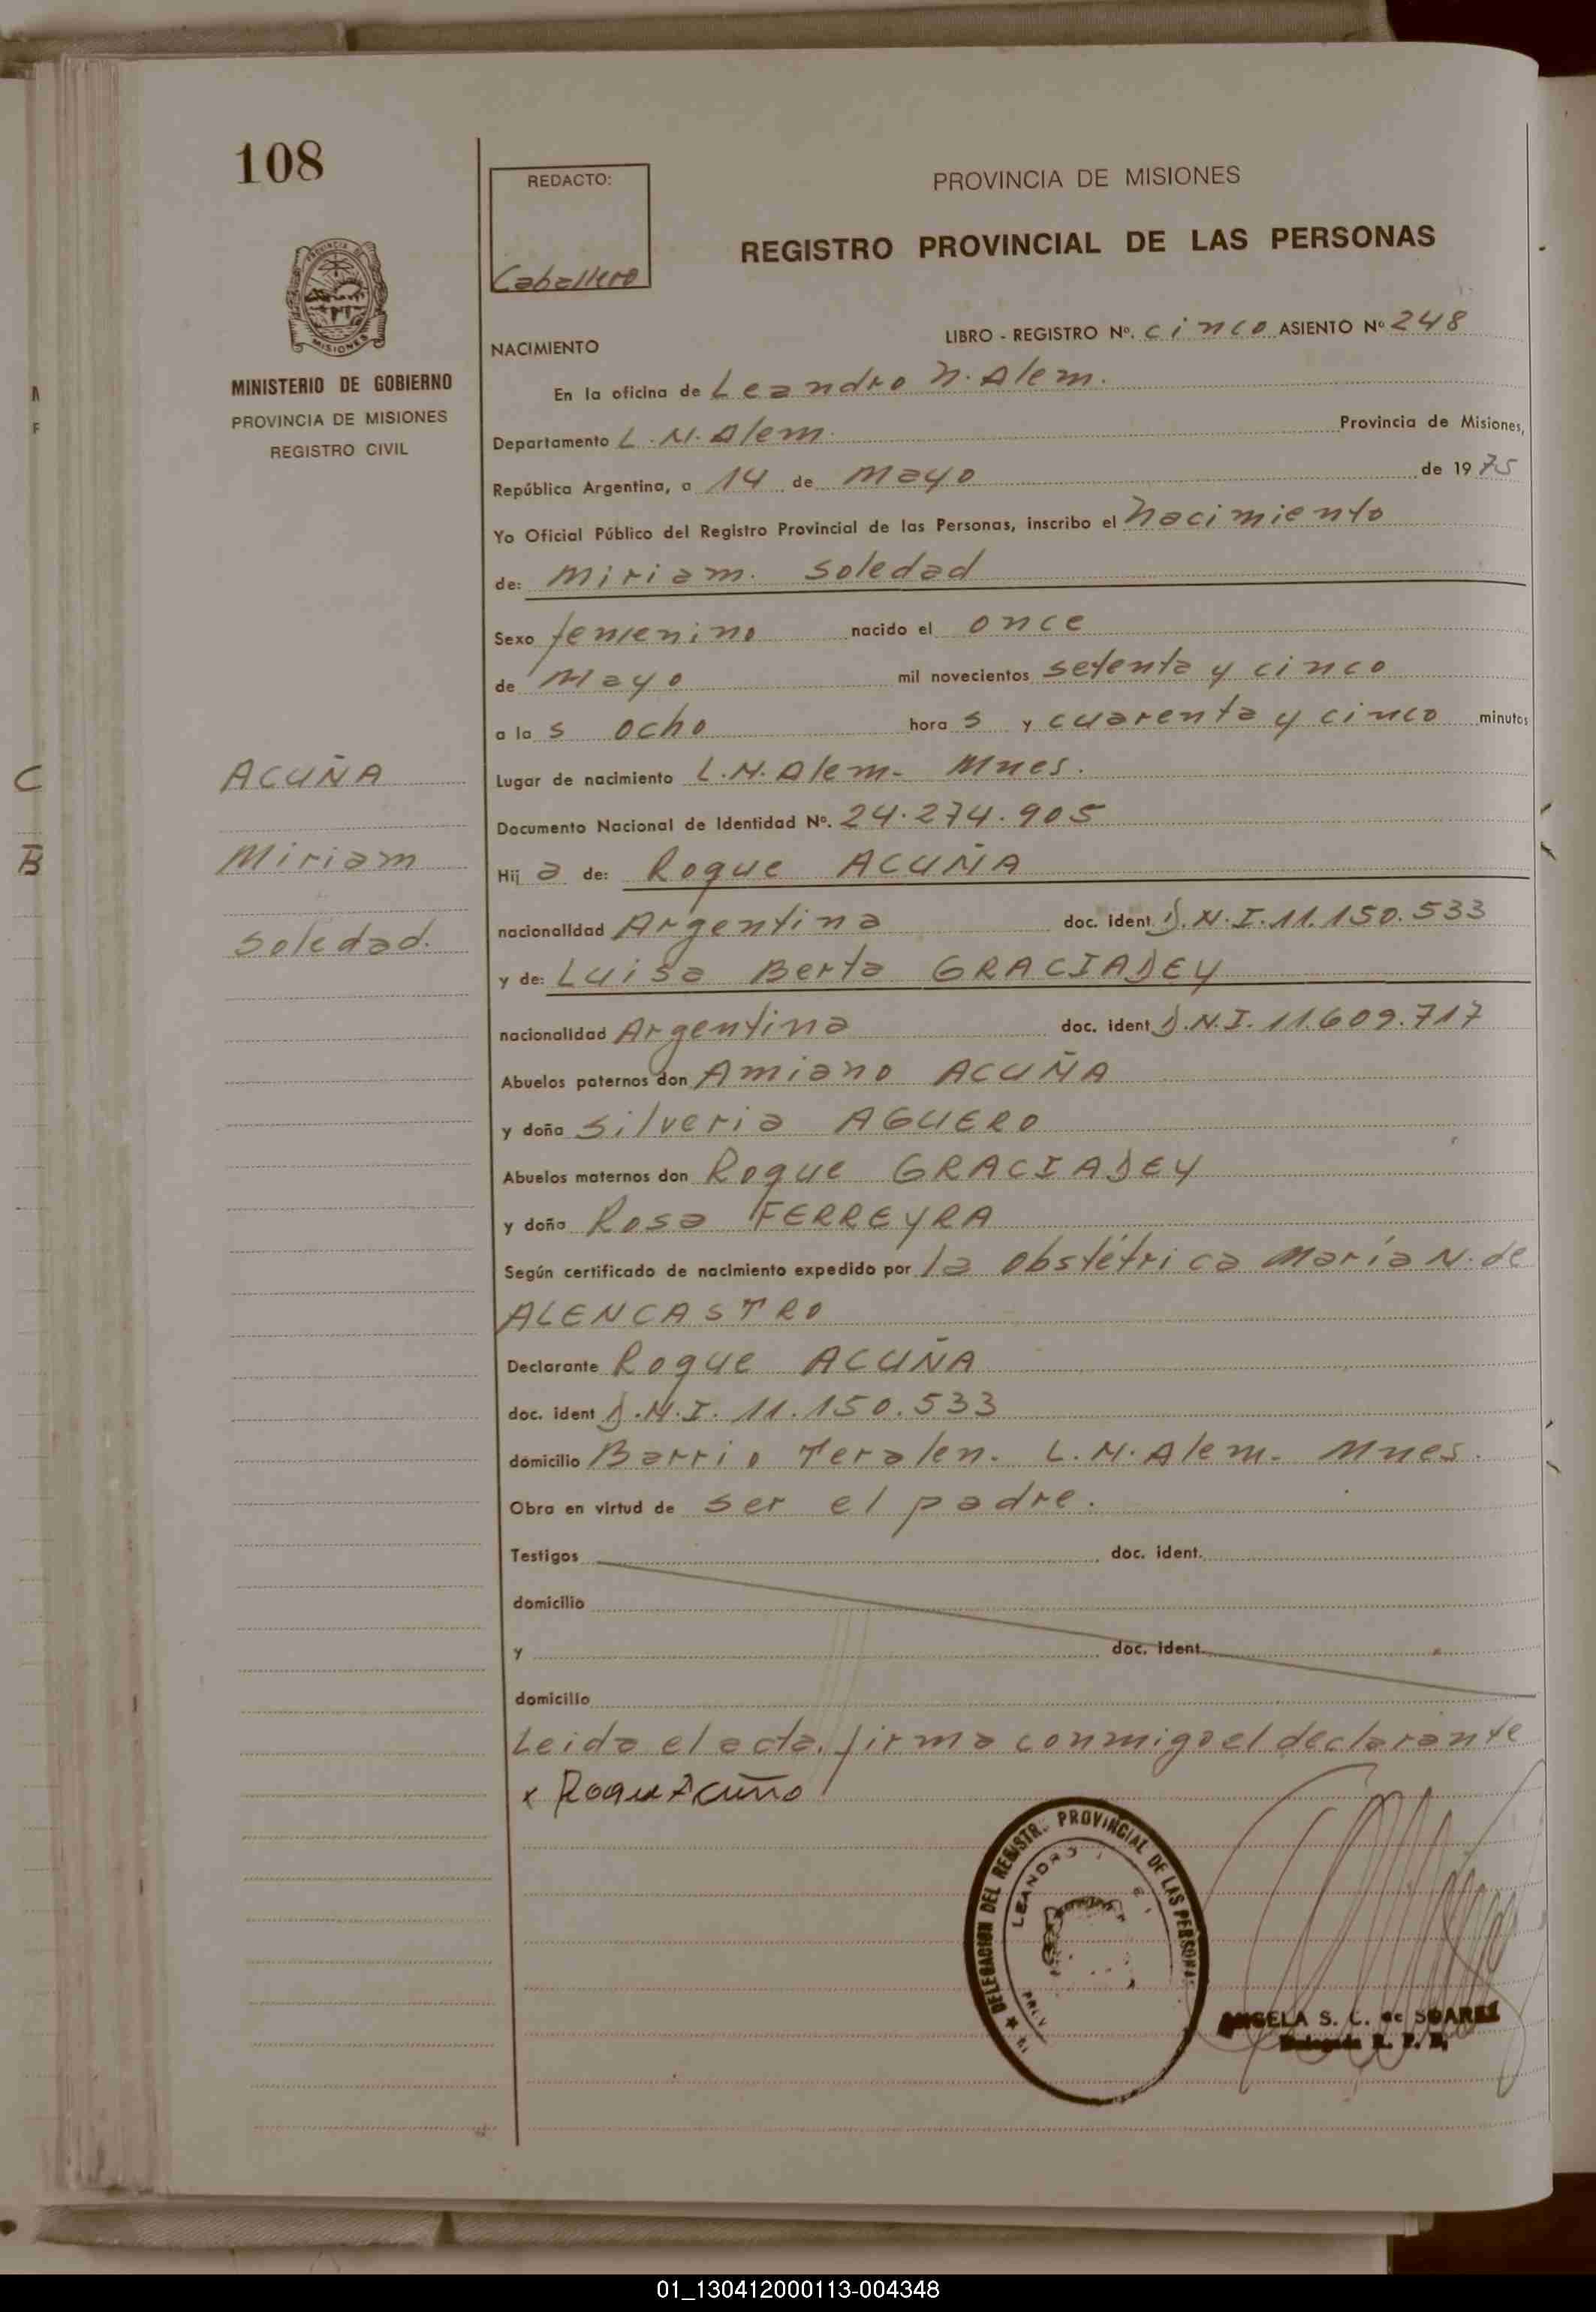 108
REDACTO:
Caballero
PROVINCIA DE MISIONES
REGISTRO PROVINCIAL DE LAS PERSONAS
PROVINCIA DE
MISIONES
MINISTERIO DE GOBIERNO
PROVINCIA DE MISIONES
REGISTRO CIVIL
LIBRO - REGISTRO Nº. cinco ASIENTO Nº 248
NACIMIENTO
En la oficina de Leandro N. Alem.
Departamento L. N. Alem. Provincia de Misiones,
República Argentina, a 14 de Mayo de 1975
Yo Oficial Público del Registro Provincial de las Personas, inscribo el nacimiento
de: Miriam. Soledad
Sexo femenino nacido el once
de Mayo mil novecientos setenta y cinco
a las ocho horas y cuarenta y cinco minutos
ACUÑA
Miriam
Soledad.
Lugar de nacimiento L.N. Alem. Mnes.
Documento Nacional de Identidad Nº. 24.274.905
Hija de: Roque ACUÑA
nacionalidad Argentina doc. ident D.N.I. 11.150.533
y de: Luisa Berta GRACIADEY
nacionalidad Argentina doc. ident D.N.I. 11.609.717
Abuelos paternos don Amiano ACUÑA
y doña Silveria AGUERO
Abuelos maternos don Roque GRACIADEY
y doña Rosa FERREYRA
Según certificado de nacimiento expedido por la Obstétrica María N. de
ALENCASTRO
Declarante Roque ACUÑA
doc. ident D.N.I. 11.150.533
domicilio Barrio Teralen. L.N. Alem. Mnes.
Obra en virtud de ser el padre.
Testigos doc. ident.
domicilio
y doc. ident.
domicilio
Leida el acta, firma conmigo el declarante
x Roque Acuña
DELEGACION DEL REGISTR. PROVINCIAL DE LAS PERSONAS
LEANDRO
ANGELA S. C. de SOAREZ
Delegada R. P. P.
01_130412000113-004348